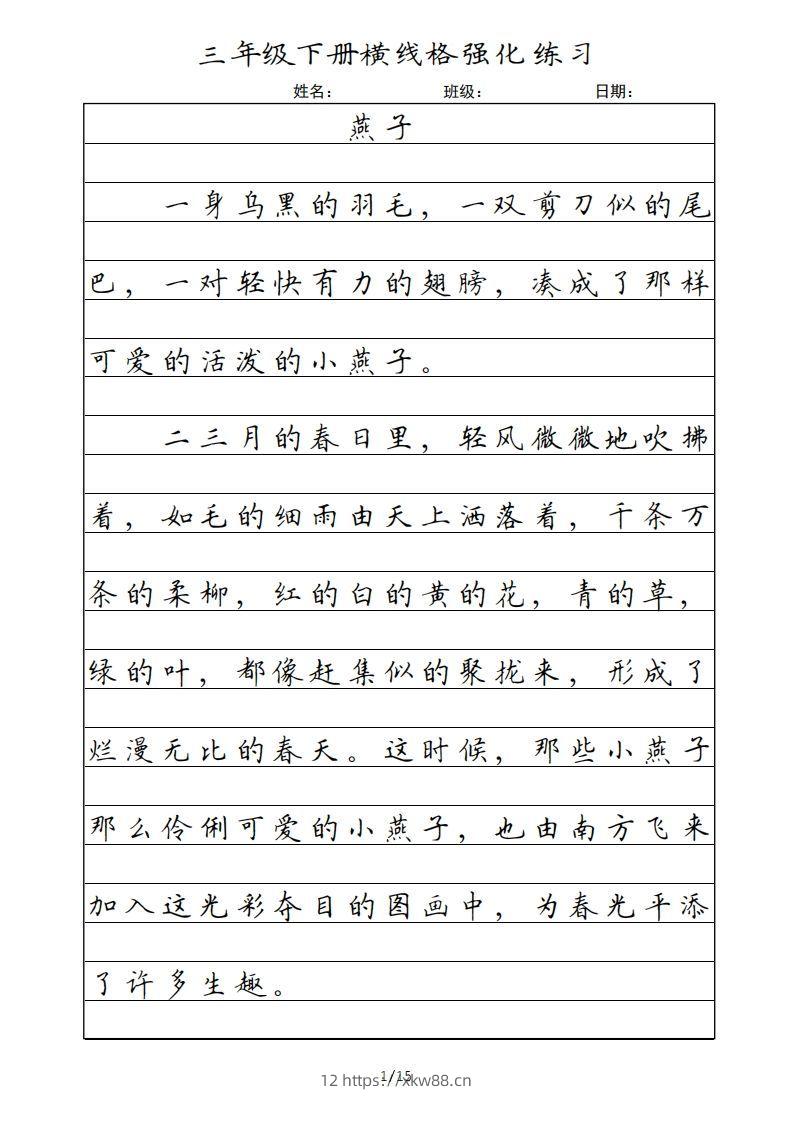 三年级下册横线格强化练习
姓名： 班级： 日期：
燕子
一身乌黑的羽毛，一双剪刀似的尾
巴，一对轻快有力的翅膀，凑成了那样
可爱的活泼的小燕子。
二三月的春日里，轻风微微地吹拂
着，如毛的细雨由天上洒落着，千条万
条的柔柳，红的白的黄的花，青的草，
绿的叶，都像赶集似的聚拢来，形成了
烂漫无比的春天。这时候，那些小燕子
那么伶俐可爱的小燕子，也由南方飞来
加入这光彩夺目的图画中，为春光平添
了许多生趣。
1/15
12 https://xkw88.cn